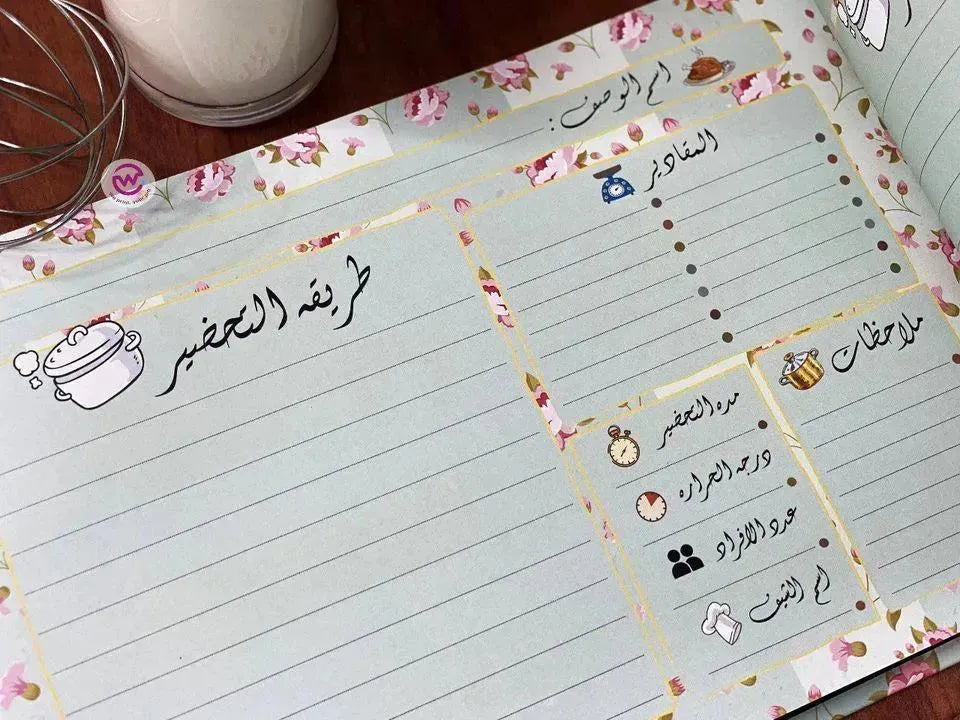 اسم الوصف:
المقادير
طريقه التحضير
مده التحضير
درجه الحراره
عدد الافراد
اسم الشيف
ملاحظات